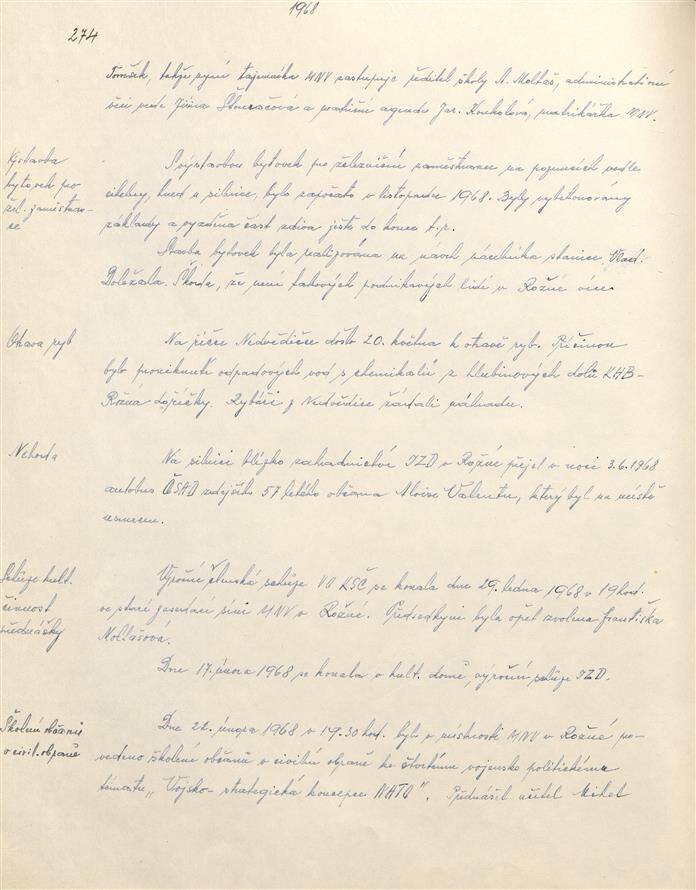 1968
274
Tomšek, takže nyní tajemníka MNV zastupuje ředitel školy A. Moltaš, administrativní
věci vede Jiřina a matriční agendu Jar. Koukolová, matrikářka MNV.
Výstavba
bytovek pro
žel. zaměstnan-
ce
S výstavbou bytovek pro železniční zaměstnance na pozemcích vedle
cihelny, hned u silnice, bylo započato v listopadu 1968. Byly vybetonovány
základy a vyzděna část zdiva ještě do konce t.r.
Stavba bytovek byla realizována na návrh náčelníka stanice Vlad.
Doležala. Škoda, že není takových podnikavých lidí v Rožné více.
Otrava ryb
Na říčce Nedvědičce došlo 20. května k otravě ryb. Příčinou
bylo proniknutí odpadových vod s chemikalií z hlubinových dolů KHB-
Rožná do říčky. Rybáři z Nedvědice žádali náhradu.
Nehoda
Na silnici blízko zahradnictví JZD v Rožné přejel v noci 3.6.1968
autobus ČSAD zdejšího 57 letého občana Aloise Valentu, který byl na místě
usmrcen.
Schůze kult.
činnost
přednášky
Výroční členská schůze VO KSČ se konala dne 29. ledna 1968 v 19 hod.
ve staré zasedací síni MNV v Rožné. Předsedkyní byla opět zvolena Františka
Moltašová.
Dne 17. února 1968 se konala v kult. domě výroční schůze JZD.
Školení občanů
o civil. obraně
Dne 22. února 1968 v 19.30 hod. bylo v místnosti MNV v Rožné pro-
vedeno školení občanů v civilní obraně ke čtvrtému vojensko politickému
tématu „Vojsko-strategická koncepce NATO". Přednášel učitel Mikel